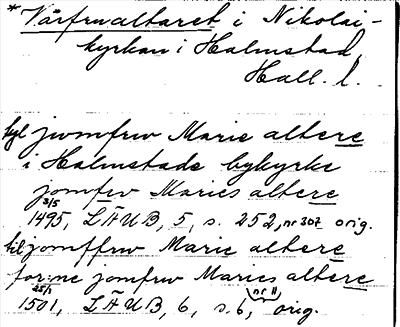 *Vårfrualtaret i Nikolai-
kyrkan i Halmstad,
Hall. l.
tyl jwmfrw Marie altere
i Halmstade bykyrke
jomfrv Maries altere
3/5
1495, LÄUB, 5, s. 252, nr 307 orig.
til jomffrw Marie altere
for:ne jomfrw Maries altere
25/1
1501, LÄUB, 6, s. 6, nr 11, orig.